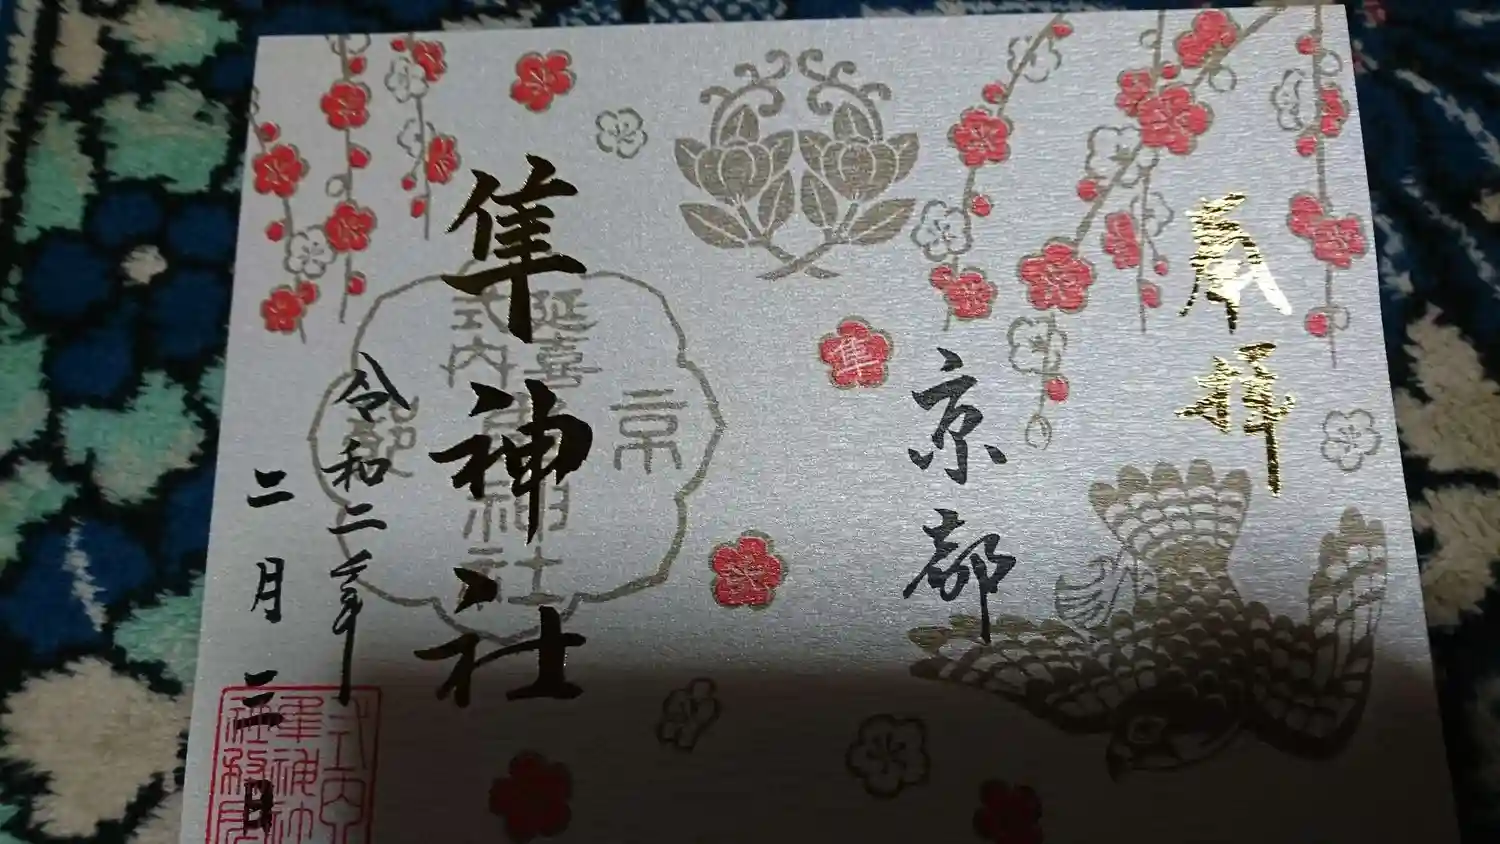 奉拝
京都
隼
隼神社
京
延喜
式内
隼神社
都
令和二年
二月二二日
式内
隼神社